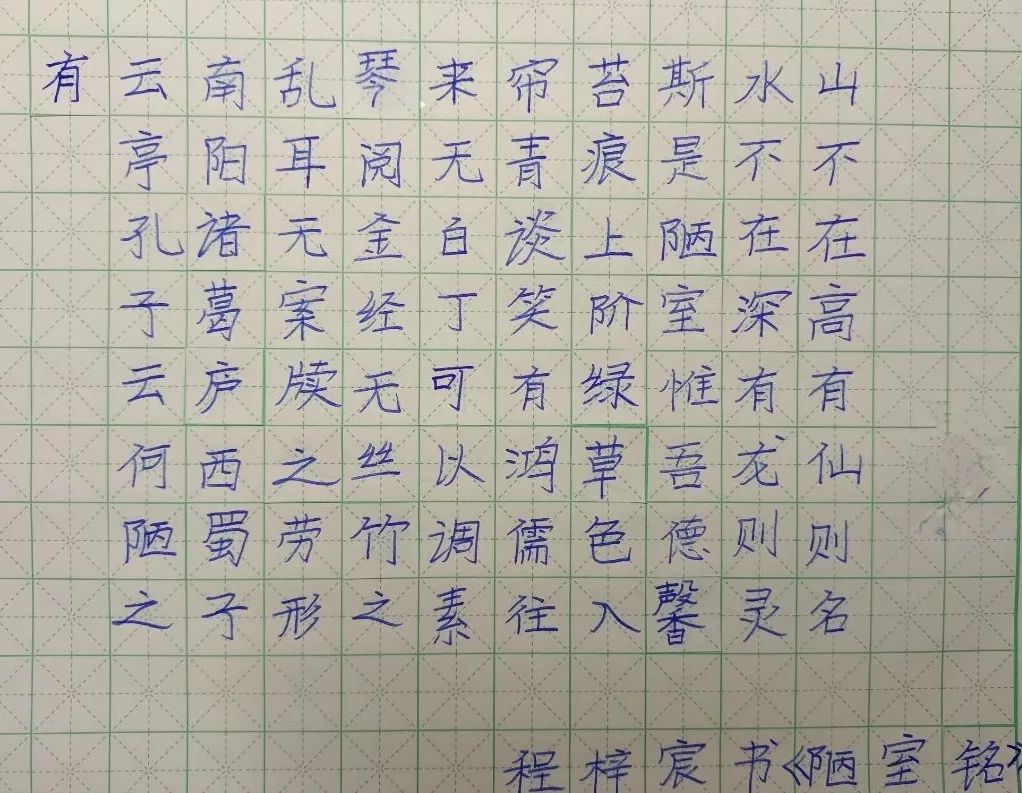 山不在高有仙则名
水不在深有龙则灵
斯是陋室惟吾德馨
苔痕上阶绿草色入
帘青谈笑有鸿儒往
来无白丁可以调素
琴阅金经无丝竹之
乱耳无案牍之劳形
南阳诸葛庐西蜀子
云亭孔子云何陋之
有
程梓宸书《陋室铭》